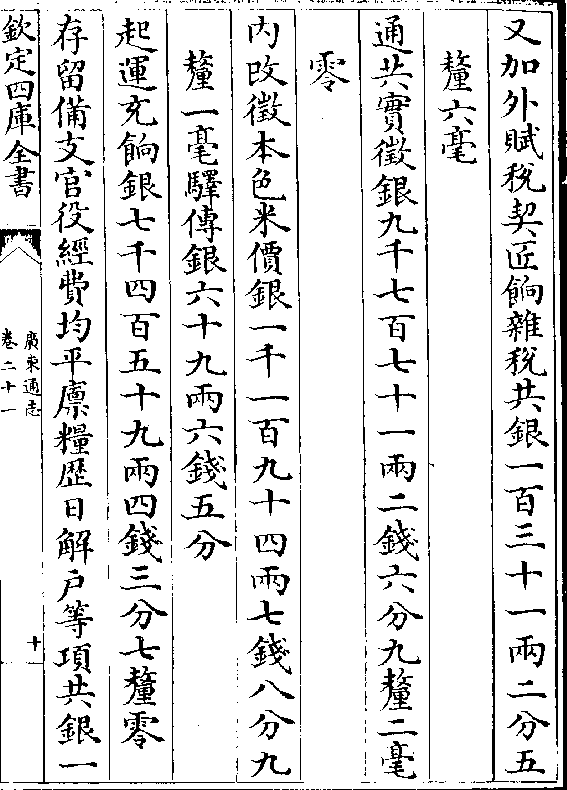 又加外賦稅契匠餉雜稅共銀一百三十一兩二分五
釐六毫
通共實徵銀九千七百七十一兩二錢六分九釐二毫
零
内改徵本色米價銀一千一百九十四兩七錢八分九
釐一毫驛傳銀六十九兩六錢五分
起運充餉銀七千四百五十九兩四錢三分七釐零
存留備支官役經費均平廪糧歴日解户等項共銀一
欽定四庫全書
廣東通志
卷二十一
十